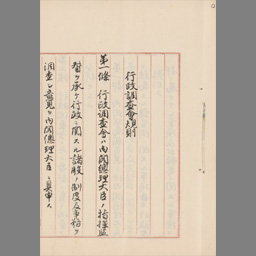 行政調査會規則
第一條 行政調査會ハ内閣總理大臣ノ指揮監
督ヲ承ケ行政ニ關スル諸般ノ制度及事務ヲ
調査シ意見ヲ内閣總理大臣ニ具申ス